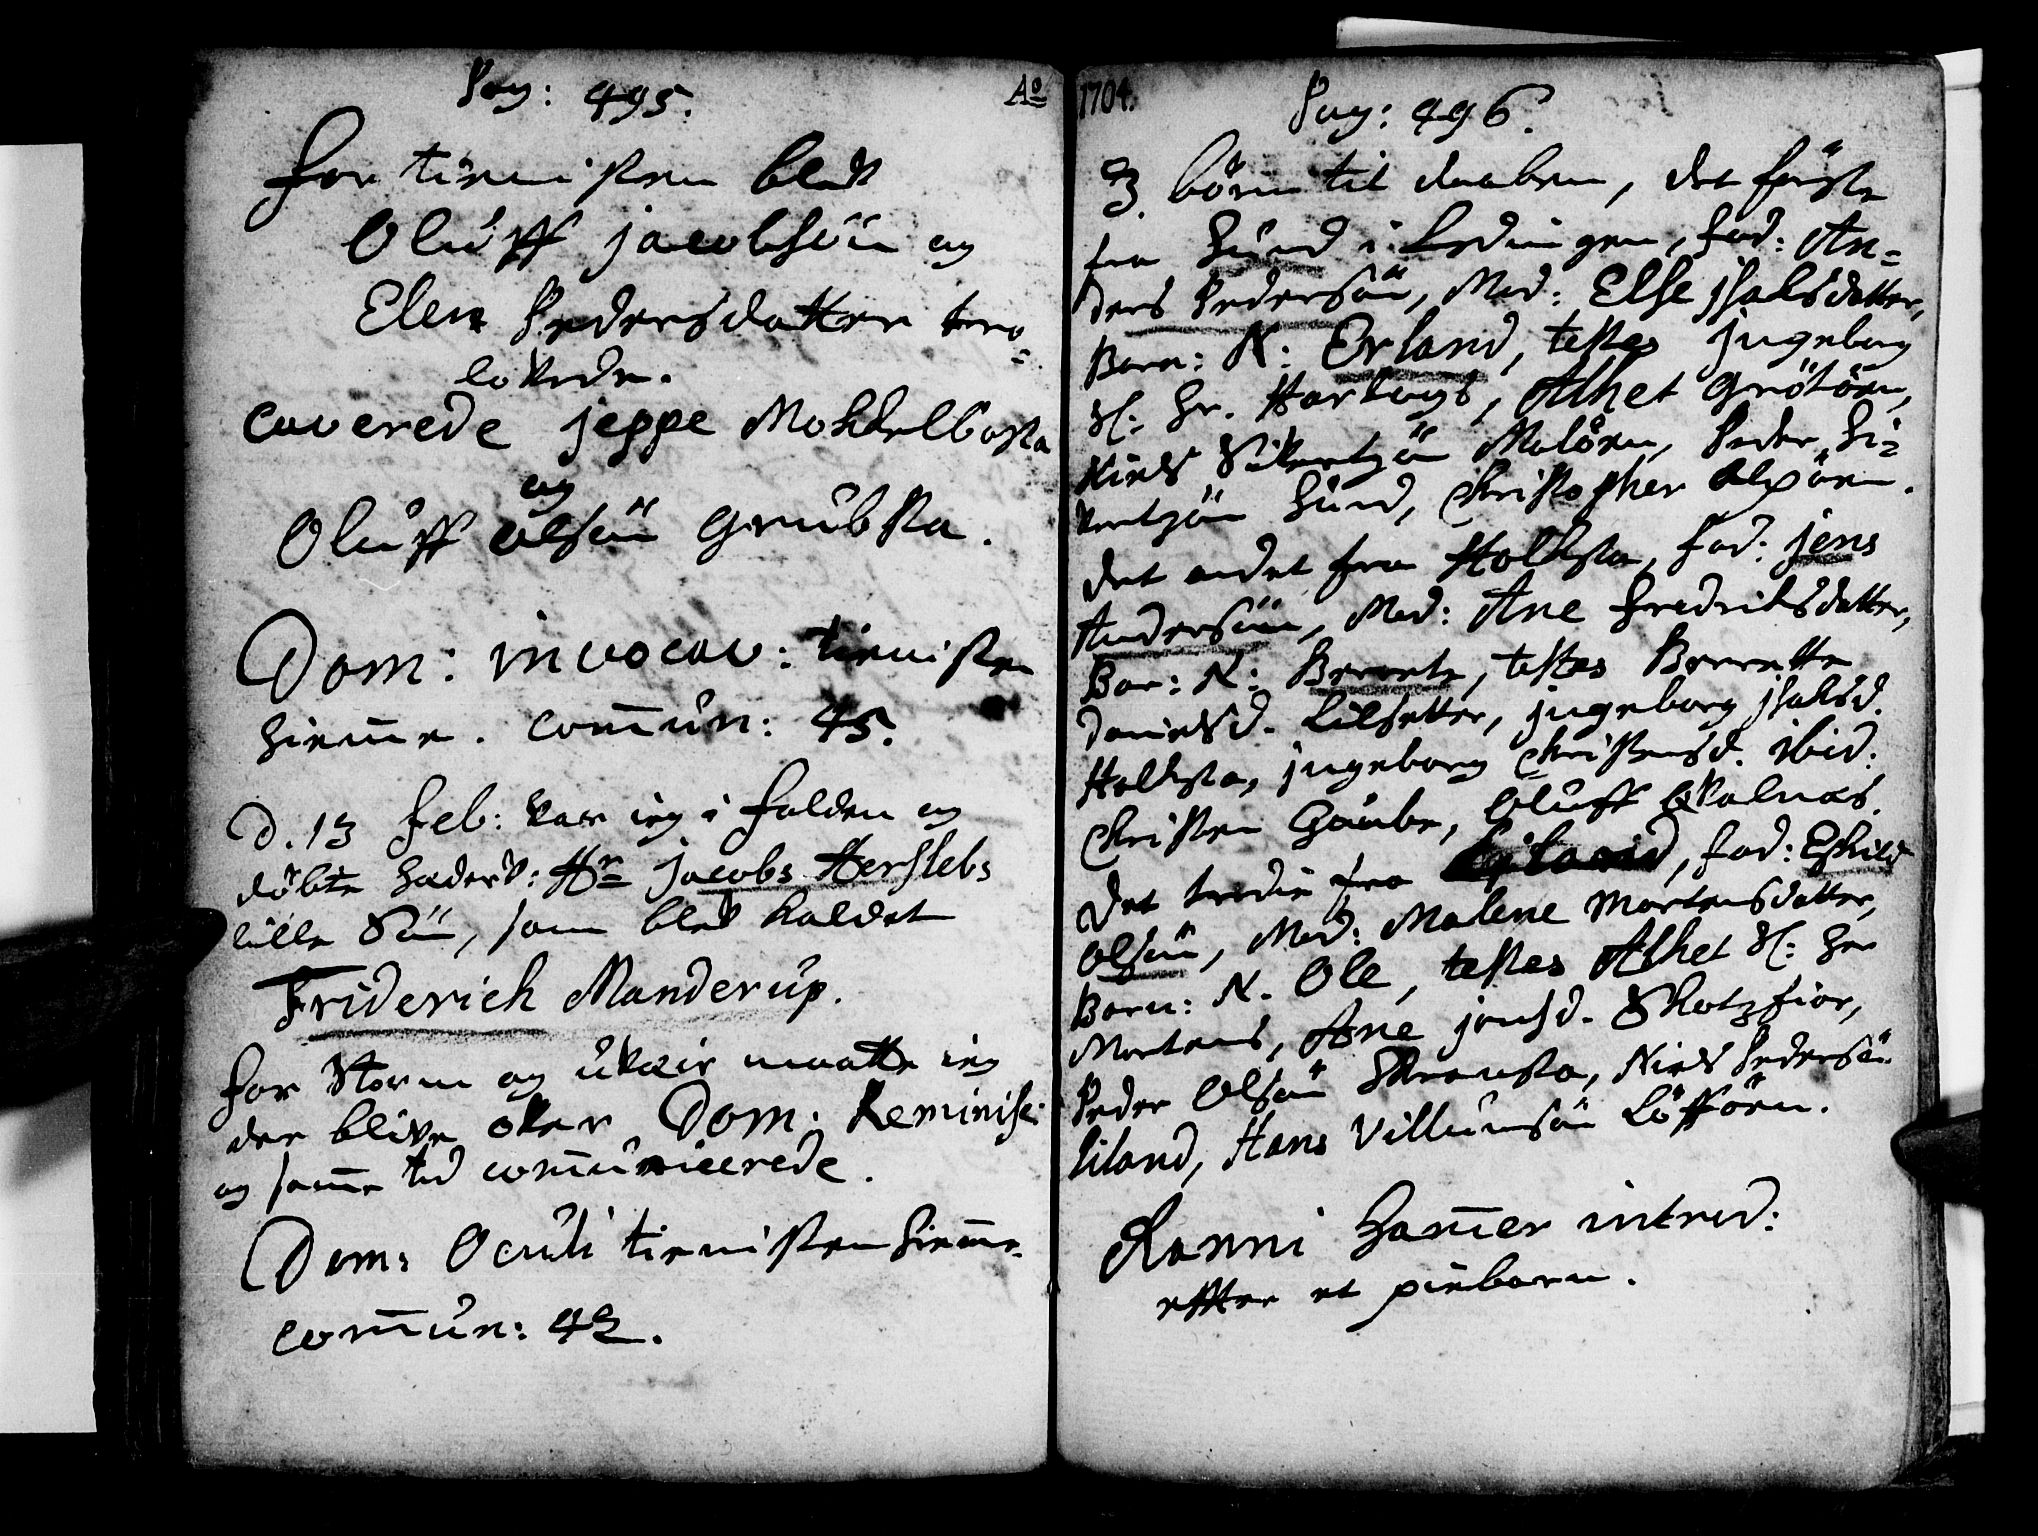 Pag: 495.
for tienisten bleff
Oluff jacobsön og
Elen Pedersdatter tro=
lovede.
caverede jeppe Mohkelbosta
og
Oluff olsön Grübsta.
Dom: invocav: tienisten
hieme. Comun: 45.
D. 13 Feb: var ieg i Folden og
döbte hæderv: Hr jacobs Herslebs
lille Sön, som blev kaldet
Friderich Manderup.
for Storm og uveir maatte ieg
der blive over Dom: Reminisc:
og same tid comunicerede.
Dom: Oculi tienisten hieme
comun: 42.
Ao 1704.
Pag: 496.
3. börn til daaben, det förste
fra Sund i Ledingen, fad: An=
ders Pedersön, Mod: Else jsaksdatter,
Barn: N: Erland, testes jngeborg
Sl: Hr. Hartvigs, Alhet Grötöen,
Niels Sivertzön Malöen, Peder Si=
vertzön Sund, Christopher Alpöen.
det andet fra Hollsta, fad: jens
Andersön, Mod: Ane Fredriksdatter,
Bar: N: Berrete, testes Berrette
Danielsd. Lilsetter, jngeborg jsaksd.
Hollsta, jngeborg Christensd. ibid:
Christen Gaube, Oluff Qvalnæs.
Det tredie fra Liland, fad: Eskild
Olsön, Mod: Malene Mortensdatter,
Barn: N. Ole, testes Alhet Sl: Hr
Mortens, Ane jonsd. Skotzfior,
Peder Olsön Skransta, Niels Pedersön
Liland, Hans Villumsön Löfföen.
Ranni Hamer introd:
effter et pieborn.